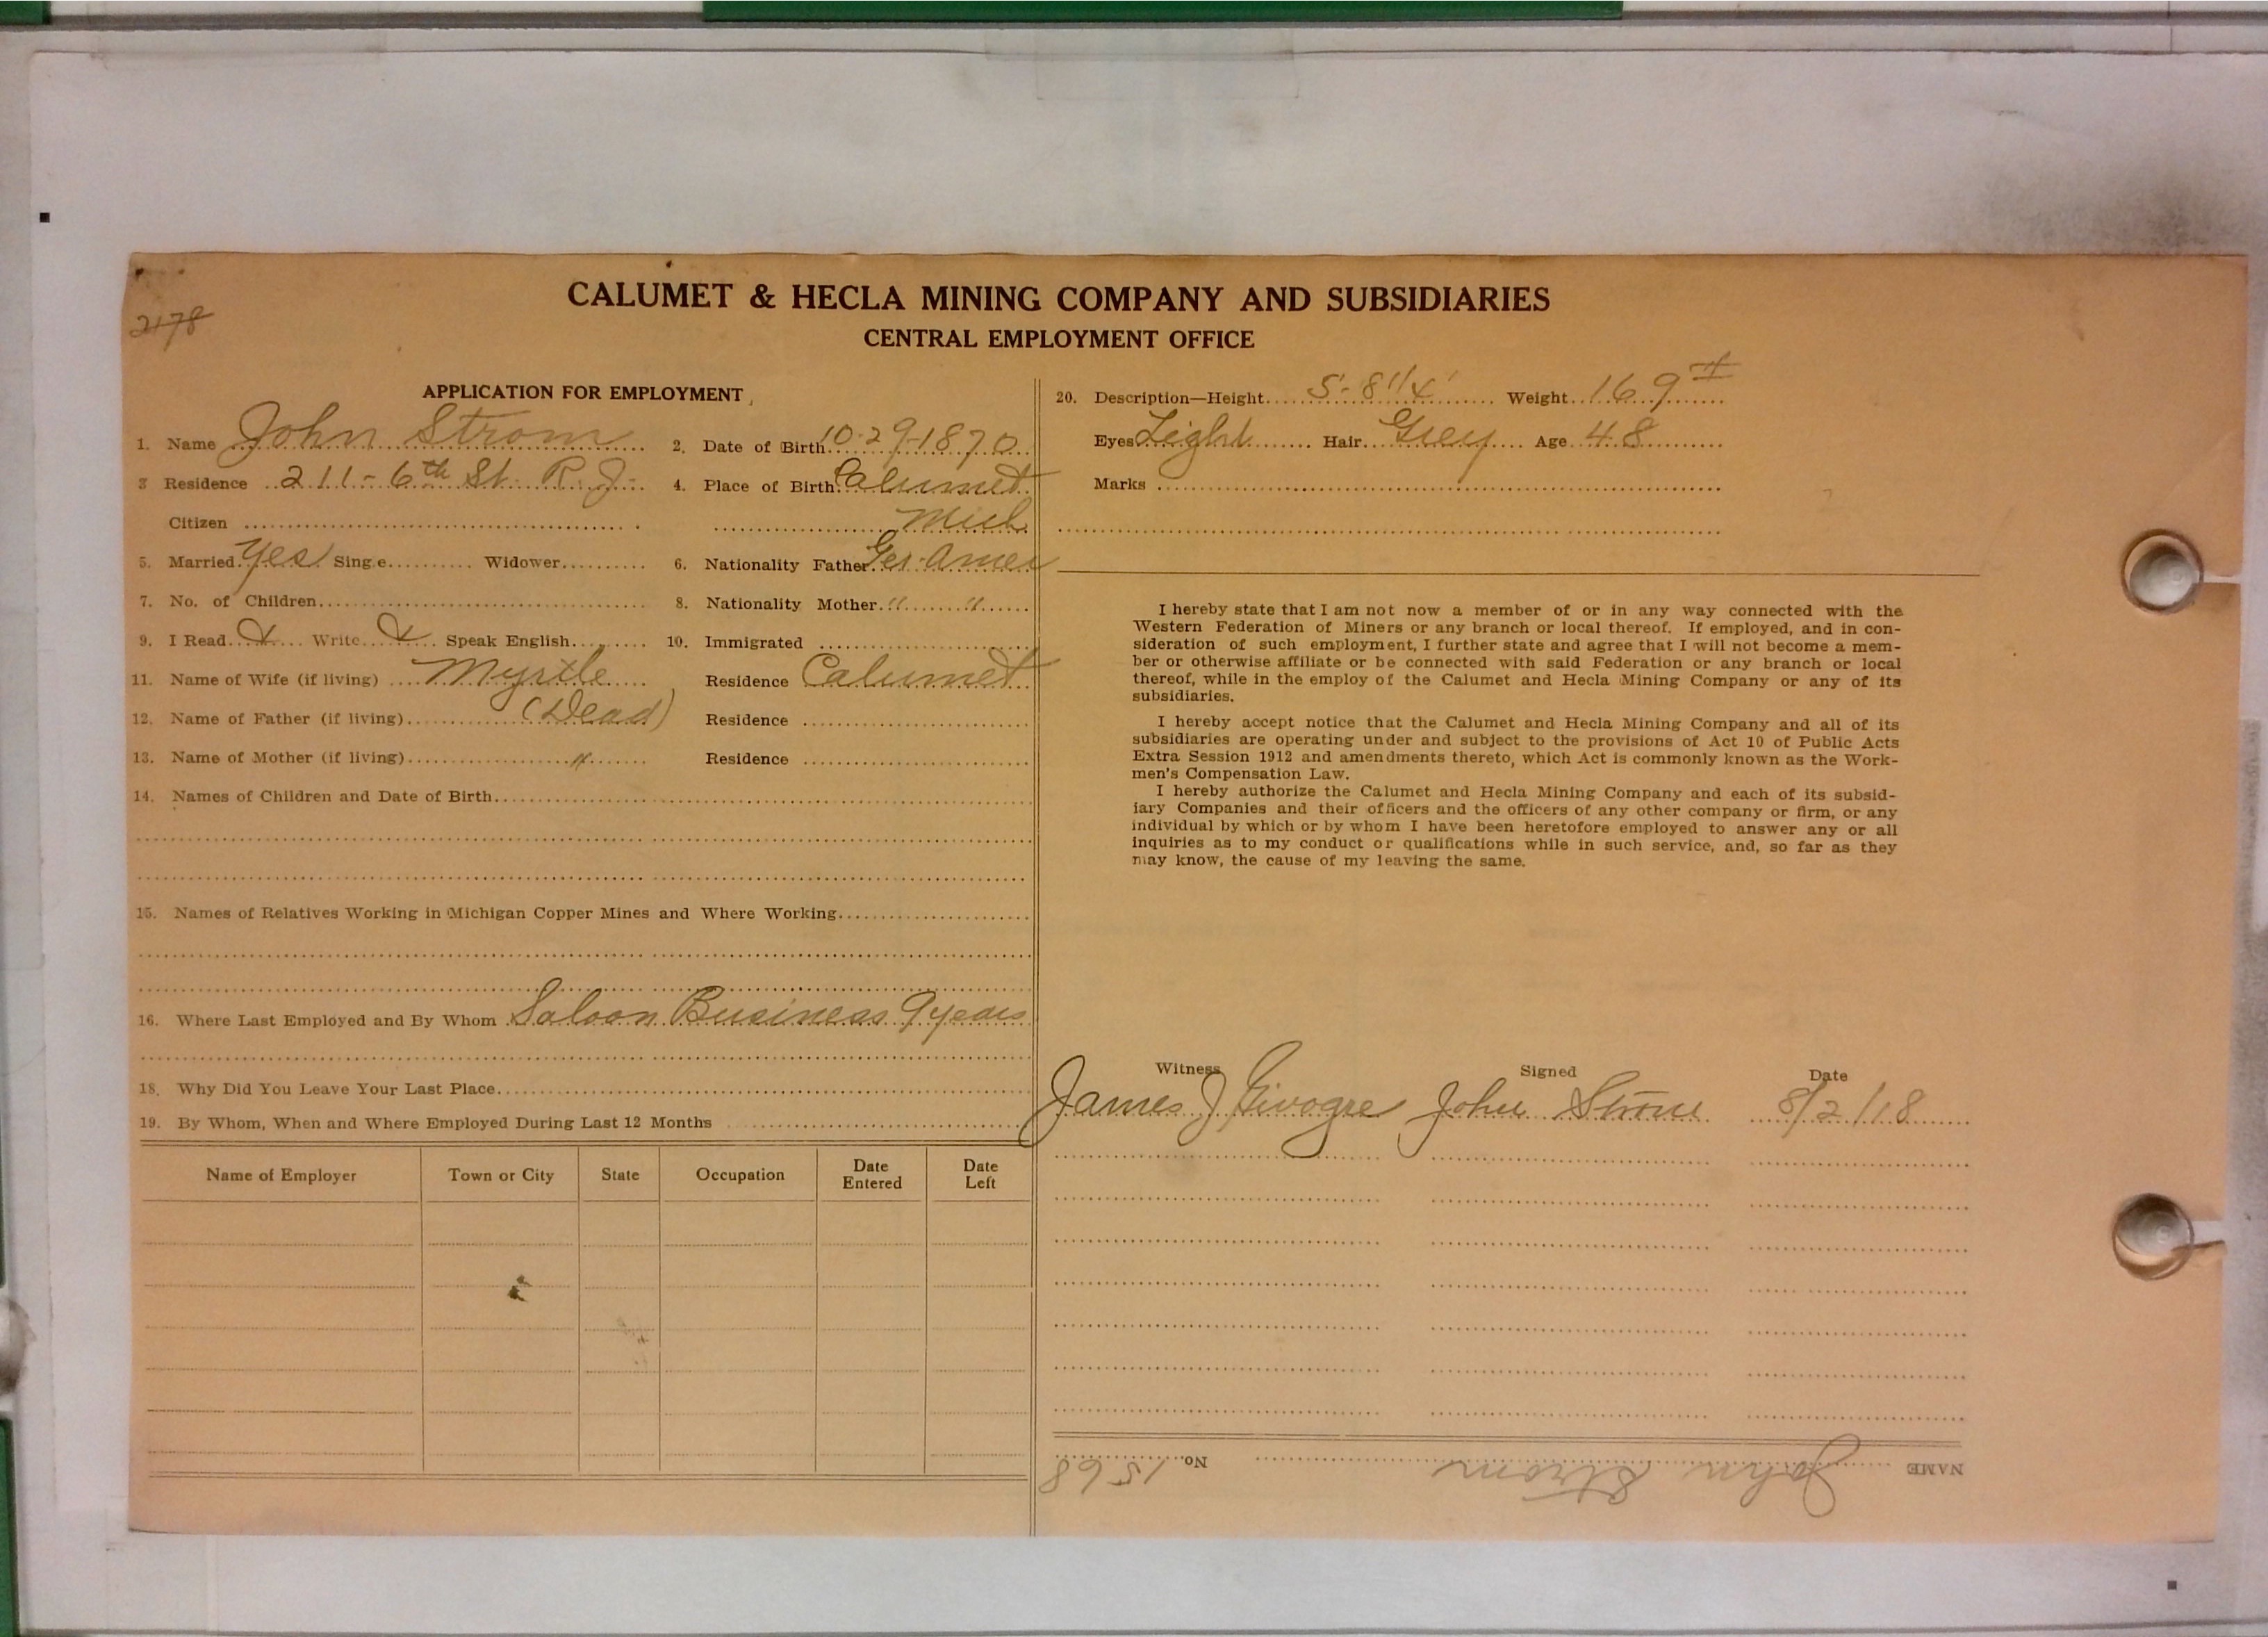 2178
CALUMET & HECLA MINING COMPANY AND SUBSIDIARIES
CENTRAL EMPLOYMENT OFFICE
APPLICATION FOR EMPLOYMENT
1. Name John Strom 2. Date of Birth 10-29-1870
3 Residence 211-6th St. R.J. 4. Place of Birth Calumet
Citizen Mich
5. Married Yes Sing.e Widower 6. Nationality Father Ger-Amer
7. No. of Children 8. Nationality Mother " "
9. I Read X Write X Speak English 10. Immigrated
11. Name of Wife (if living) Myrtle Residence Calumet
12. Name of Father (if living) (Dead) Residence
13. Name of Mother (if living) " Residence
14. Names of Children and Date of Birth
15. Names of Relatives Working in Michigan Copper Mines and Where Working
16. Where Last Employed and By Whom Saloon Business 9 years
18. Why Did You Leave Your Last Place
19. By Whom, When and Where Employed During Last 12 Months
Name of Employer Town or City State Occupation Date Entered Date Left
20. Description—Height 5'-8 1/4" Weight 169 #
Eyes Light Hair Grey Age 48
Marks
I hereby state that I am not now a member of or in any way connected with the
Western Federation of Miners or any branch or local thereof. If employed, and in con-
sideration of such employment, I further state and agree that I will not become a mem-
ber or otherwise affiliate or be connected with said Federation or any branch or local
thereof, while in the employ of the Calumet and Hecla Mining Company or any of its
subsidiaries.
I hereby accept notice that the Calumet and Hecla Mining Company and all of its
subsidiaries are operating under and subject to the provisions of Act 10 of Public Acts
Extra Session 1912 and amendments thereto, which Act is commonly known as the Work-
men's Compensation Law.
I hereby authorize the Calumet and Hecla Mining Company and each of its subsid-
iary Companies and their officers and the officers of any other company or firm, or any
individual by which or by whom I have been heretofore employed to answer any or all
inquiries as to my conduct or qualifications while in such service, and, so far as they
may know, the cause of my leaving the same.
Witness Signed Date
James J John Strom 8/2/18
NAME John Strom No. 1568